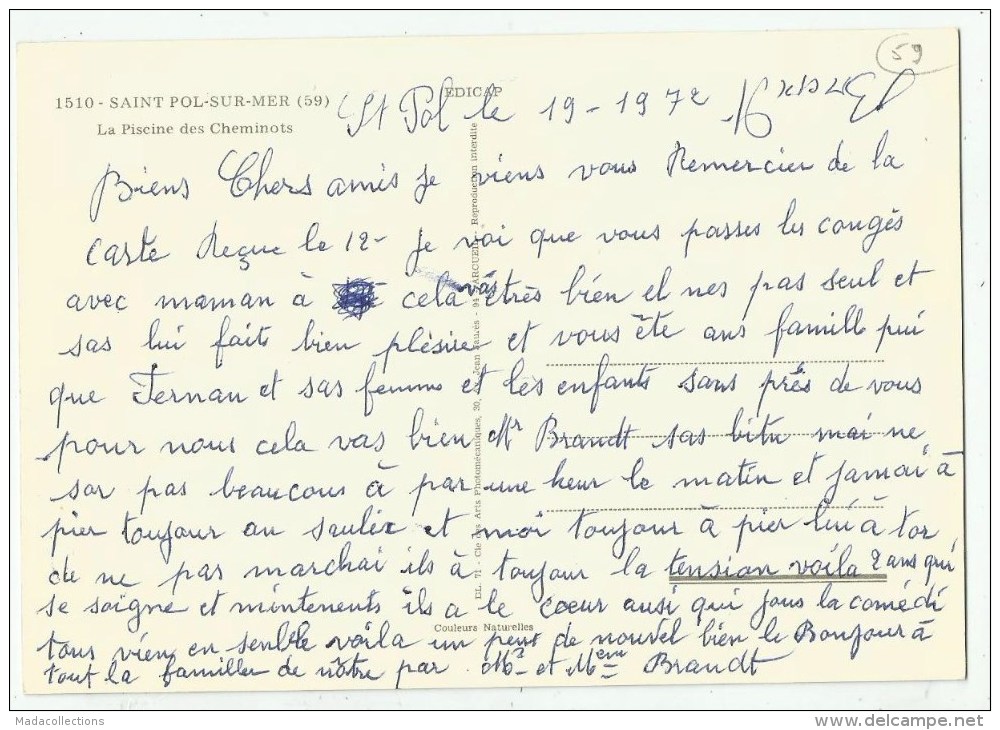 59
1510 - SAINT POL-SUR-MER (59)
La Piscine des Cheminots
EDICAP
St Pol le 19 - 1972
Biens Chers amis je viens vous Remercier de la
carte Reçue le 12 - je voi que vous passes les congés
avec maman à cela vas etrès bien el nes pas seul et
sas lui faite bien plésire et vous ête ans famille pui
que Fernan et sas femme et les enfants sans près de vous
pour nous cela vas bien Mr Brandt sas bitu mai ne
sor pas beaucous à par une heur le matin et jamai à
pier toujour au soulier et moi toujour à pier lui à tor
de ne pas marchai ils à toujour la tension voila 2 ans qui
se soigne et mintenents ils a le cœur ausi qui jous la comédi
tous vien en senble voila un peus de nouvel bien le Bonjour à
tout la familler de nôtre par Mr et Mme Brandt
DL 71 - Cie des Arts Photomécaniques, 30, Jean Jaurès - 94 ARCUEIL - Reproduction interdite
Couleurs Naturelles
Madacollections
delcampe.net